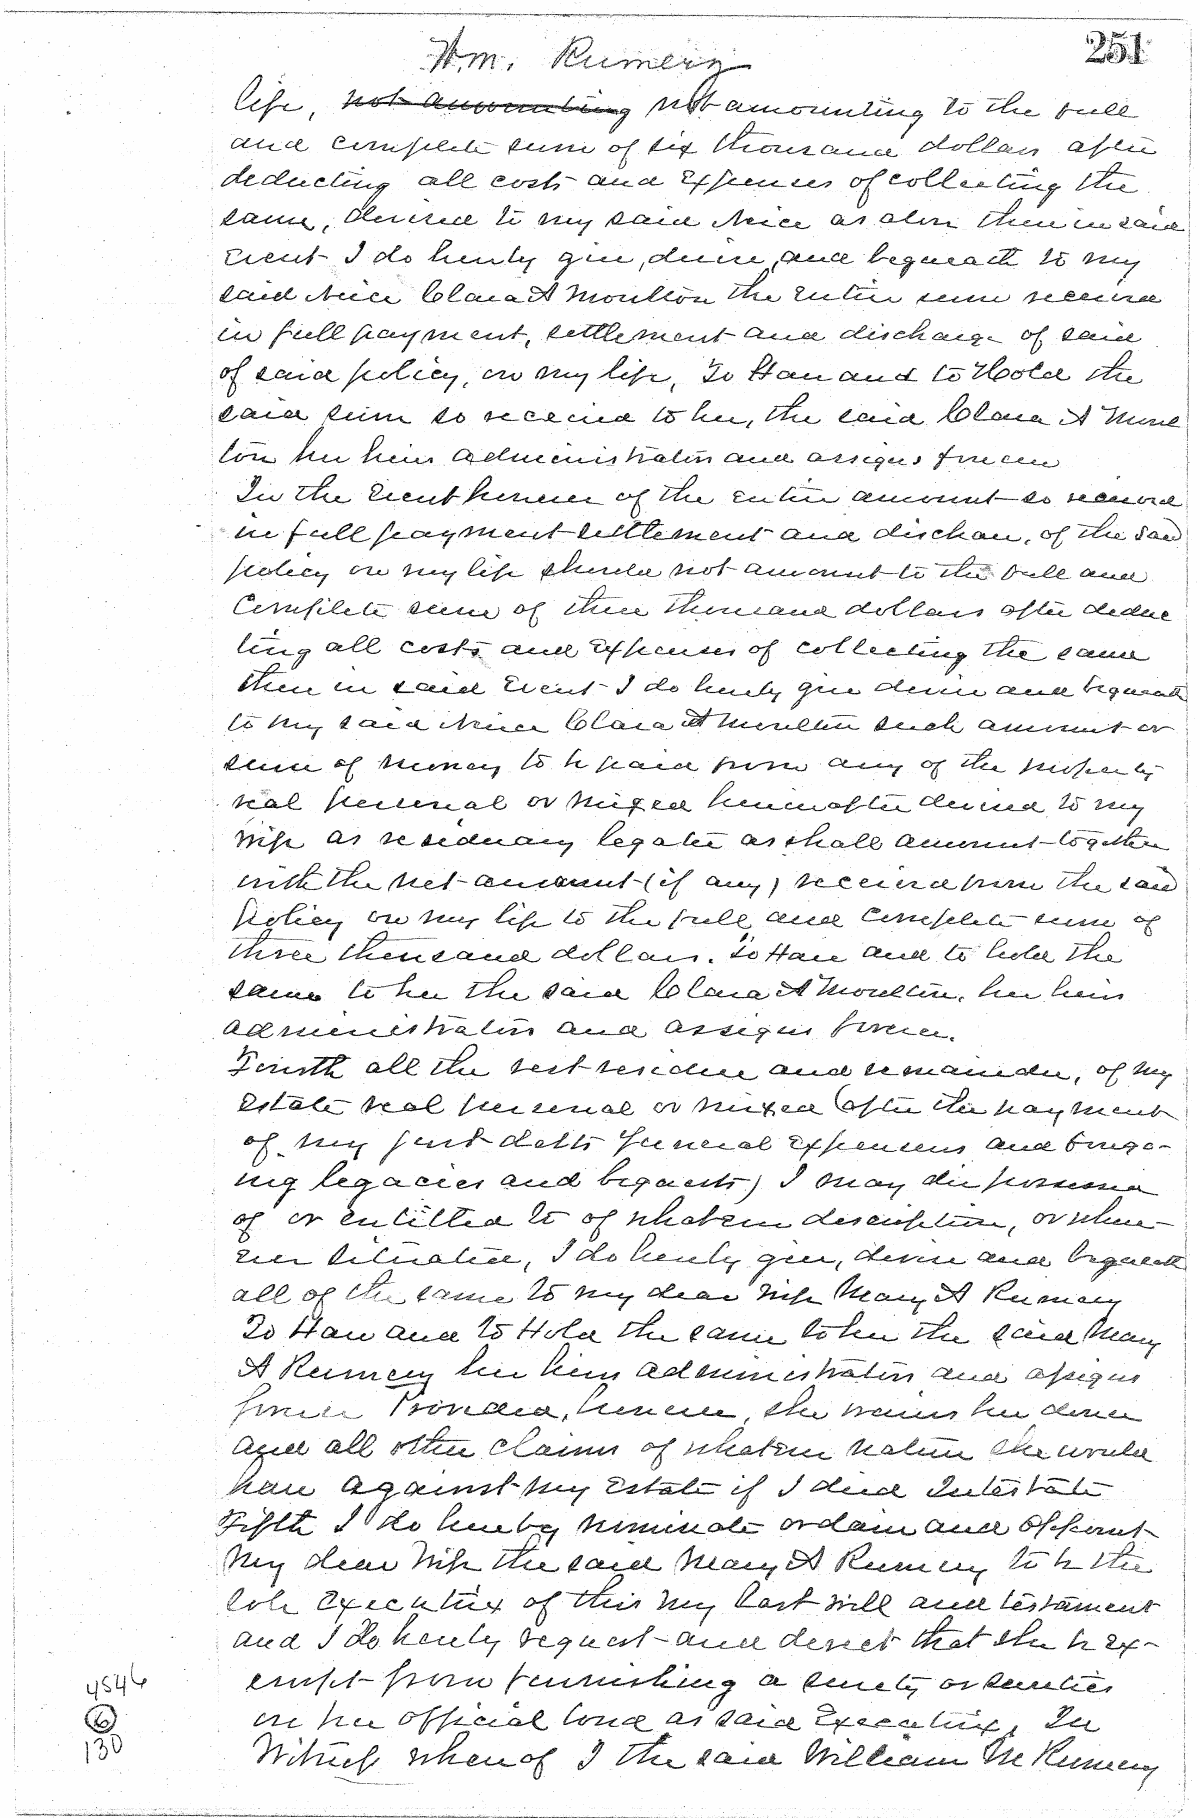 251
Wm. Rumery
life, not amounting not amounting to the full
and complete sum of six thousand dollars after
deducting all costs and expenses of collecting the
same, devised to my said Neice as afor then in said
event I do hereby give, devise, and bequeath to my
said Neice Clara A Moulton the entire sum received
in full payment, settlement and discharge of said
of said policy, on my life, To Have and to Hold the
said sum so received to her, the said Clara A Moul
ton her heirs administrators and assigns forever
In the Event however of the entire amount so received
in full payment settlement and discharge, of the said
policy on my life should not amount to the full and
Complete sum of three thousand dollars after deduc
ting all costs and expenses of collecting the same
then in said Event I do hereby give devise and bequeath
to my said Neice Clara A Moulton such amount or
sum of money to be paid from any of the property
real personal or mixed hereinafter devised to my
wife as residuary legatee as shall amount together
with the net amount (if any) received from the said
policy on my life to the full and complete sum of
three thousand dollars. To Have and to hold the
same to her the said Clara A Moulton, her heirs
administrators and assigns forever.
Fourth all the rest residue and remainder, of my
Estate real personal or mixed (after the payment
of my just debts funeral expenses and forego-
ing legacies and bequests) I may die possessed
of or entitled to of whatever description, or where-
ever situated, I do hereby give, devise and bequeath
all of the same to my dear wife Mary A Rumery
To Have and to Hold the same to her the said Mary
A Rumery her heirs administrators and assigns
forever Provided, however, she waives her dower
and all other claims of whatever nature she would
have against my Estate if I died Intestate
Fifth I do hereby nominate ordain and appoint
my dear wife the said Mary A Rumery to be the
sole executrix of this my last will and testament
and I do hereby request and direct that she be ex-
empt from furnishing a surety or sureties
on her official bond as said Executrix, In
Witness whereof I the said William M Rumery
4546
6
130